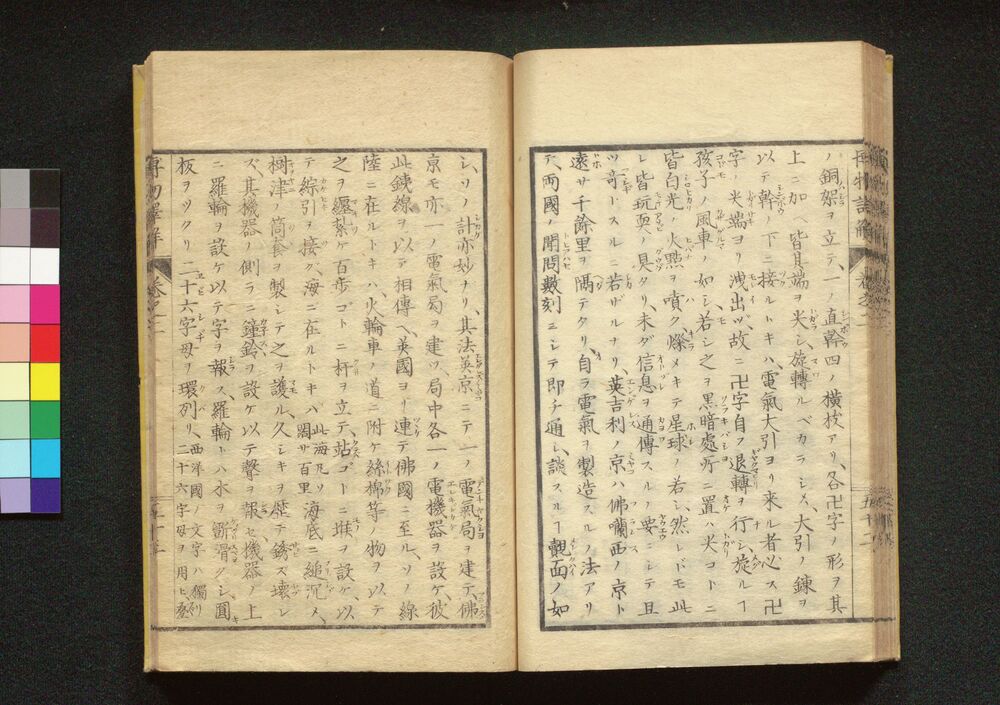 ノ銅架ヲ立テ、一ノ直幹四ノ横枝アリ、各卍字ノ形ヲ其
上ニ加ヘ皆其端ヲ尖シ、旋轉ルベカラシメ、大引ノ鍊ヲ
以テ幹ノ下ニ接ルトキハ、電氣大引ヨリ来ル者必ス卍
字ノ尖端ヨリ洩出ヅ、故ニ卍字自ラ退轉ヲ行シ、旋ルヿ
孩子ノ風車ノ如シ、若シ之ヲ黒暗處所ニ置ハ尖コトニ
皆白光ノ火點ヲ噴ク、爍メキテ星球ノ若シ、然レドモ此
レ皆玩耍ノ具タリ、未ダ信息ヲ通傳スルノ要ニシテ且
ツ竒トスルニ若ザルナリ、英吉利ノ京ハ佛囒西ノ京ト
遠サ千餘里ヲ隔テタリ、自ラ電氣ヲ製造スルノ法アリ
テ、両國ノ聞問數刻ニシテ即チ通シ、談スルヿ覿面ノ如
シ、ソノ計亦妙ナリ、其法英京ニテ一ノ電氣局ヲ建テ、佛
京モ亦一ノ電氣局ヲ建ツ、局中各一ノ電機器ヲ設ケ、彼
此銕線ヲ以テ相傳ヘ、英國ヨリ連テ佛國ニ至ル、ソノ線
陸ニ在ルトキハ、火輪車ノ道ニ附ケ絲棉等ノ物ヲ以テ
之ヲ纒紮ケ百歩ゴトニ杆ヲ立テ、站ゴトニ堆ヲ設ケ、以
テ綜引ヲ接ク、海ニ在ルトキハ 此海凡ソ闊サ百里 海底ニ縋沉メ、
樹津ノ筒套ヲ製シテ之ヲ護ル、久シキヲ歴テ銹壊レ
ズ、其機器ノ側ラニ鐘鈴ヲ設ケ以テ聲ヲ報セ、機器ノ上
ニ羅輪ヲ設ケ以テ字ヲ報ス、羅輪トハ水ヲ
板ヲツクリ二十六字母ヲ環列リ、西洋國ノ文字ハ獨リ二十六字母ヲ用ヒ